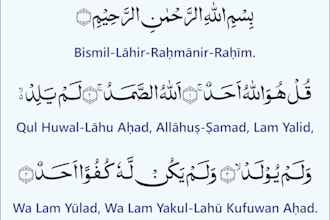 بِسْمِ اللهِ الرَّحْمٰنِ الرَّحِيْمِ
Bismil-Lāhir-Raḥmānir-Raḥīm.
قُلْ هُوَ اللهُ اَحَدٌ ۚ ۝١ اَللهُ الصَّمَدُ ۚ ۝٢ لَمْ يَلِدْ ەۙ
Qul Huwal-Lāhu Aḥad, Allāhuṣ-Ṣamad, Lam Yalid,
وَلَمْ يُوْلَدْ ۙ ۝٣ وَلَمْ يَكُنْ لَّهٗ كُفُوًا اَحَدٌ ۝٤
Wa Lam Yūlad, Wa Lam Yakul-Lahū Kufuwan Aḥad.